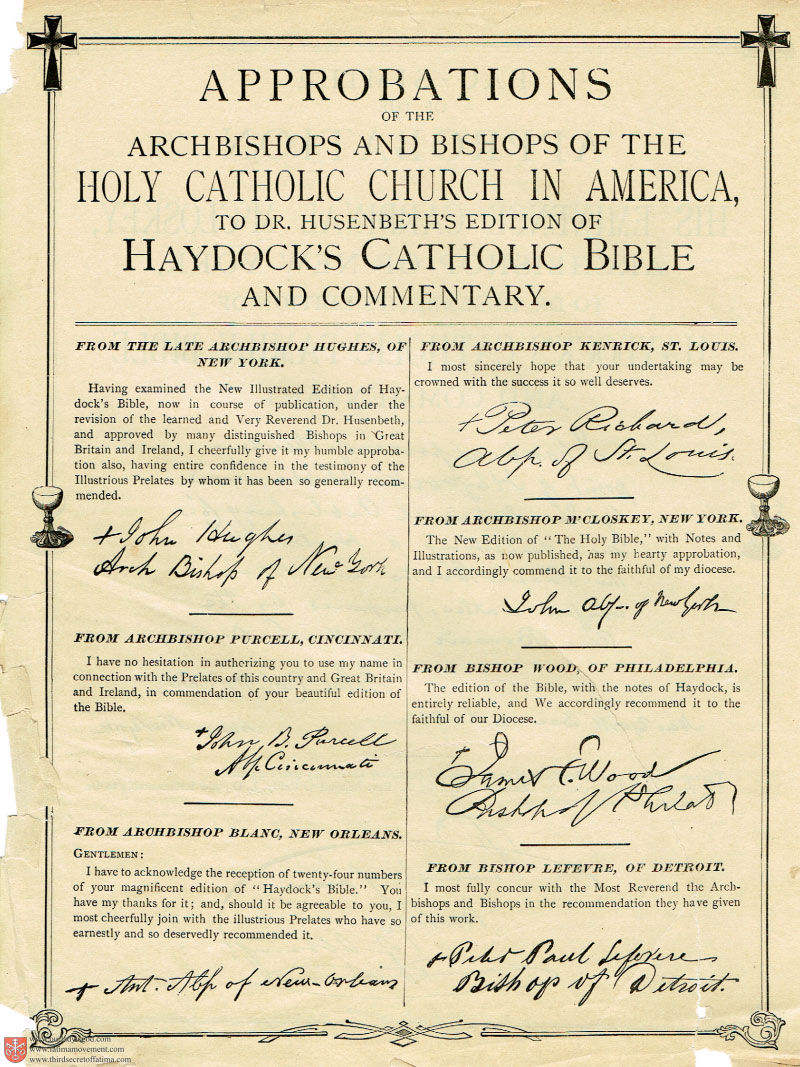 APPROBATIONS
OF THE
ARCHBISHOPS AND BISHOPS OF THE
HOLY CATHOLIC CHURCH IN AMERICA,
TO DR. HUSENBETH'S EDITION OF
HAYDOCK'S CATHOLIC BIBLE
AND COMMENTARY.
FROM THE LATE ARCHBISHOP HUGHES, OF
NEW YORK.
Having examined the New Illustrated Edition of Hay-
dock's Bible, now in course of publication, under the
revision of the learned and Very Reverend Dr. Husenbeth,
and approved by many distinguished Bishops in Great
Britain and Ireland, I cheerfully give it my humble approba-
tion also, having entire confidence in the testimony of the
Illustrious Prelates by whom it has been so generally recom-
mended.
+ John Hughes
Arch Bishop of New York
FROM ARCHBISHOP PURCELL, CINCINNATI.
I have no hesitation in autherizing you to use my name in
connection with the Prelates of this country and Great Britain
and Ireland, in commendation of your beautiful edition of
the Bible.
+ John B. Purcell
Abp Cincinnati
FROM ARCHBISHOP BLANC, NEW ORLEANS.
GENTLEMEN:
I have to acknowledge the reception of twenty-four numbers
of your magnificent edition of "Haydock's Bible." You
have my thanks for it; and, should it be agreeable to you, I
most cheerfully join with the illustrious Prelates who have so
earnestly and so deservedly recommended it.
+ Ant. Abp of New-Orleans
FROM ARCHBISHOP KENRICK, ST. LOUIS.
I most sincerely hope that your undertaking may be
crowned with the success it so well deserves.
+ Peter Richard,
Abp. of St. Louis.
FROM ARCHBISHOP M'CLOSKEY, NEW YORK.
The New Edition of "The Holy Bible," with Notes and
Illustrations, as now published, has my hearty approbation,
and I accordingly commend it to the faithful of my diocese.
John Abp. of New York
FROM BISHOP WOOD, OF PHILADELPHIA.
The edition of the Bible, with the notes of Haydock, is
entirely reliable, and We accordingly recommend it to the
faithful of our Diocese.
+ James F. Wood
Bishop of Philad
FROM BISHOP LEFEVRE, OF DETROIT.
I most fully concur with the Most Reverend the Arch-
bishops and Bishops in the recommendation they have given
of this work.
+ Peter Paul Lefevere
Bishop of Detroit.
www.fatimamovement.com
www.thirdsecretoffatima.com